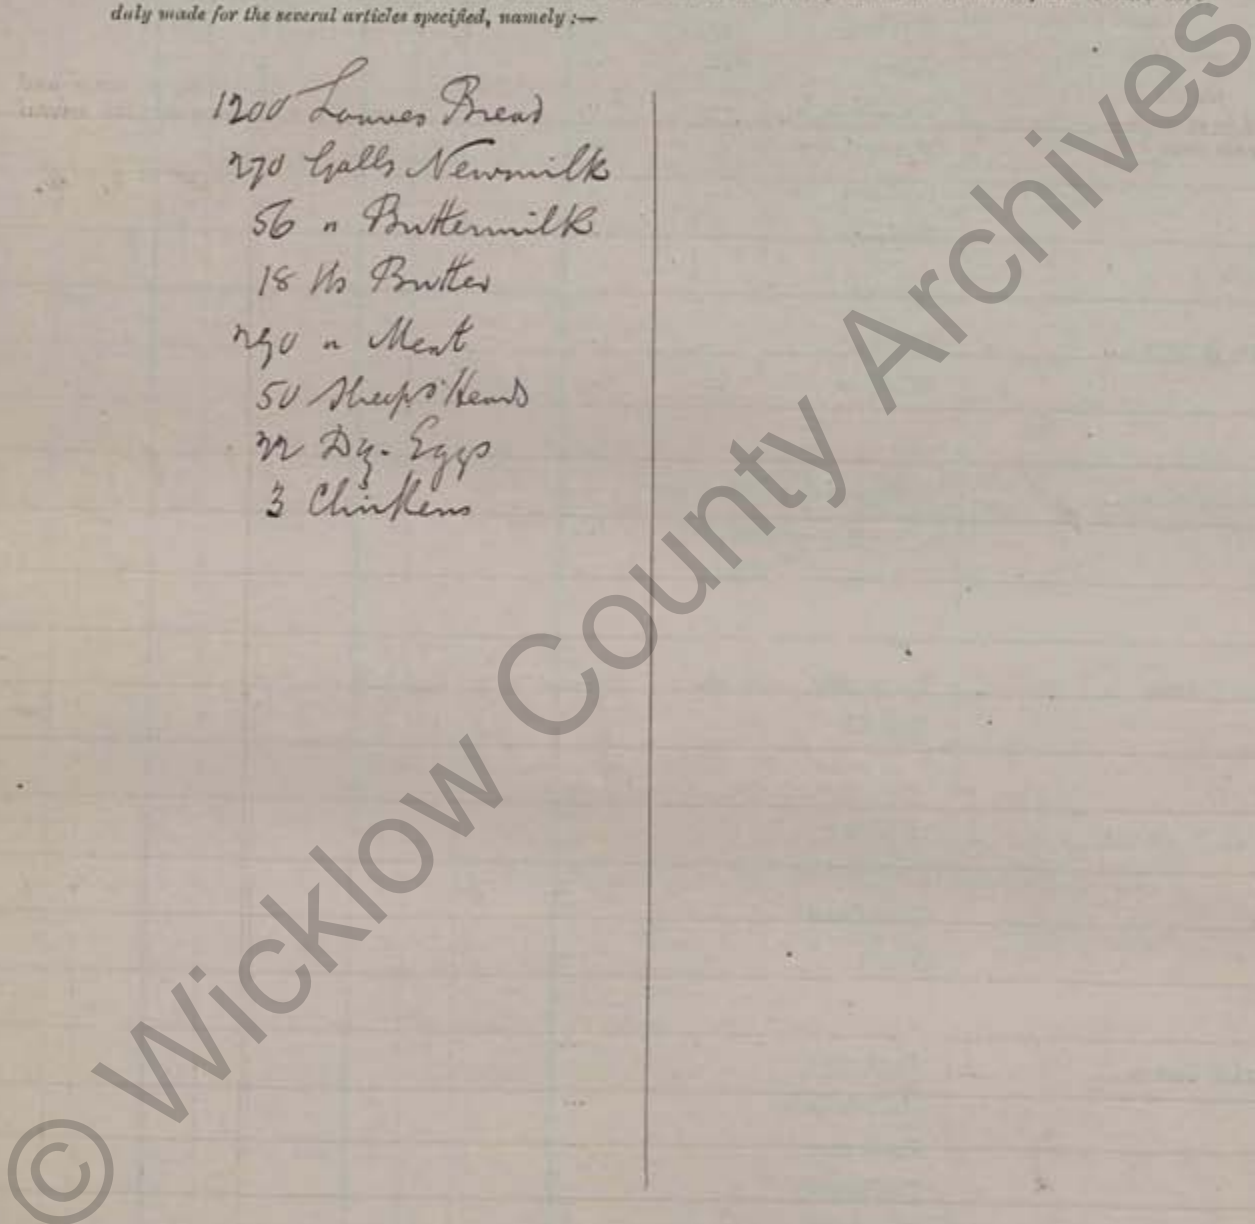 duly made for the several articles specified, namely :—
1200 Loaves Bread
270 Galls Newmilk
56 " Buttermilk
18 lbs Butter
290 " Meat
50 Sheeps' Heads
22 Dz. Eggs
3 Chickens
© Wicklow County Archives